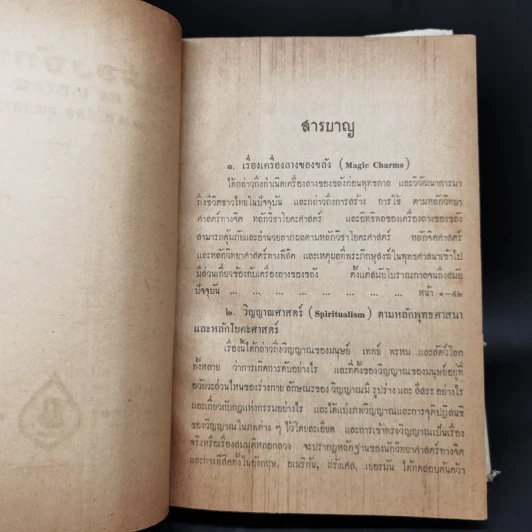 สารบาญ
๑. เรื่องเครื่องลางของขลัง (Magic Charms)
ได้กล่าวถึงกำเนิดเครื่องลางของขลังก่อนพุทธกาล และวิวัฒนาการมา
ถึงชีวิตชาวไทยในปัจจุบัน และกล่าวถึงการสร้าง การใช้ ตามหลักวิทยา
ศาสตร์ทางจิต หลักวิชาโยคะศาสตร์ และอิทธิพลของเครื่องลางของขลัง
สามารถคุ้มภัยและอำนวยลาภผลตามหลักวิชาโยคะศาสตร์ หลักจิตศาสตร์
และหลักวิทยาศาสตร์ทางฟิสิค และเหตุผลที่พระภิกษุสงฆ์ในพุทธศาสนาเข้าไป
มีส่วนเกี่ยวข้องกับเครื่องลางของขลัง ตั้งแต่สมัยโบราณกาลจนถึงสมัย
ปัจจุบัน ... ... ... ... ... ... ... หน้า ๑-๕๒
๒. วิญญาณศาสตร์ (Spiritualism) ตามหลักพุทธศาสนา
และหลักโยคะศาสตร์
เรื่องนี้ได้กล่าวถึงวิญญาณของมนุษย์ เทพย์ พรหม และสัตว์โลก
ทั้งหลาย ว่าการเกิดการดับอย่างไร และที่ตั้งของวิญญาณของมนุษย์อยู่ที่
อวัยวะส่วนไหนของร่างกาย ลักษณะของ วิญญาณมี รูปร่าง และ สีสรร อย่างไร
และเกี่ยวกับกฎแห่งกรรมอย่างไร และได้แบ่งภพวิญญาณและการจุติปฏิสนธิ
ของวิญญาณในภพต่าง ๆ ไว้โดยละเอียด และการเข้าทรงวิญญาณเป็นเรื่อง
จริงหรือเรื่องสมมุติหลอกลวง จะปรากฏหลักฐานของนักวิทยาศาสตร์ทางจิต
และทางฟิสิคทั้งในอังกฤษ, อเมริกัน, ฝรั่งเศส, เยอรมัน ได้ทดสอบค้นคว้า